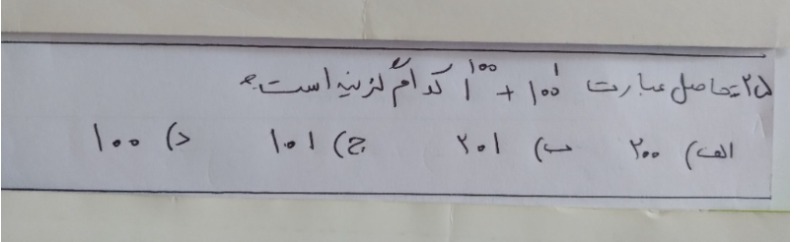 ۲۵- حاصل عبارت ۱۰۰^۱ + ۱^۱۰۰ کدام گزینه است؟
الف) ۲۰۰ ب) ۲۰۱ ج) ۱۰۱ د) ۱۰۰